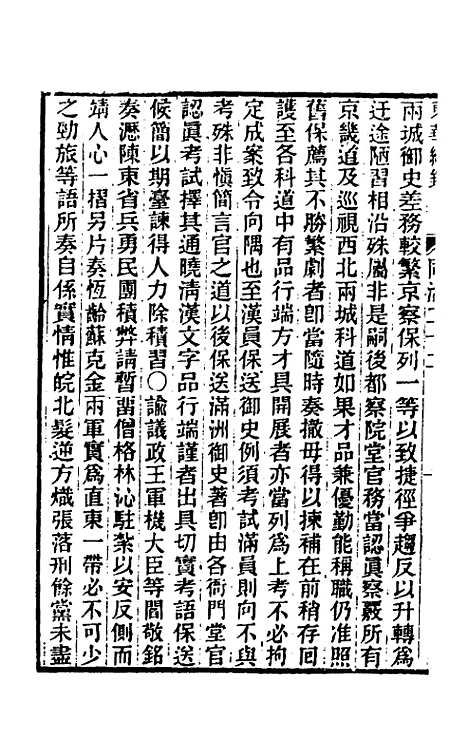 兩城御史差務較繁京察保列一等以致捷徑爭趨反以升轉爲
迂途陋習相沿殊屬非是嗣後都察院堂官務當認眞察覈所有
京畿道及巡視西北兩城科道如果才品兼優勤能稱職仍准照
舊保薦其不勝繁劇者卽當隨時奏撤毋得以揀補在前稍存回
護至各科道中有品行端方才具開展者亦當列爲上考不必拘
定成案致令向隅也至漢員保送御史例須考試滿員則向不與
考殊非愼簡言官之道以後保送滿洲御史著卽由各衙門堂官
認眞考試擇其通曉清漢文字品行端謹者出具切實考語保送
候簡以期臺諫得人力除積習〇諭議政王軍機大臣等閻敬銘
奏瀝陳東省兵勇民團積弊請暫畱僧格林沁駐紮以安反側而
靖人心一摺另片奏恆齡蘇克金兩軍實爲直東一帶必不可少
之勁旅等語所奏自係實情惟皖北髮逆方熾張落刑餘黨未盡